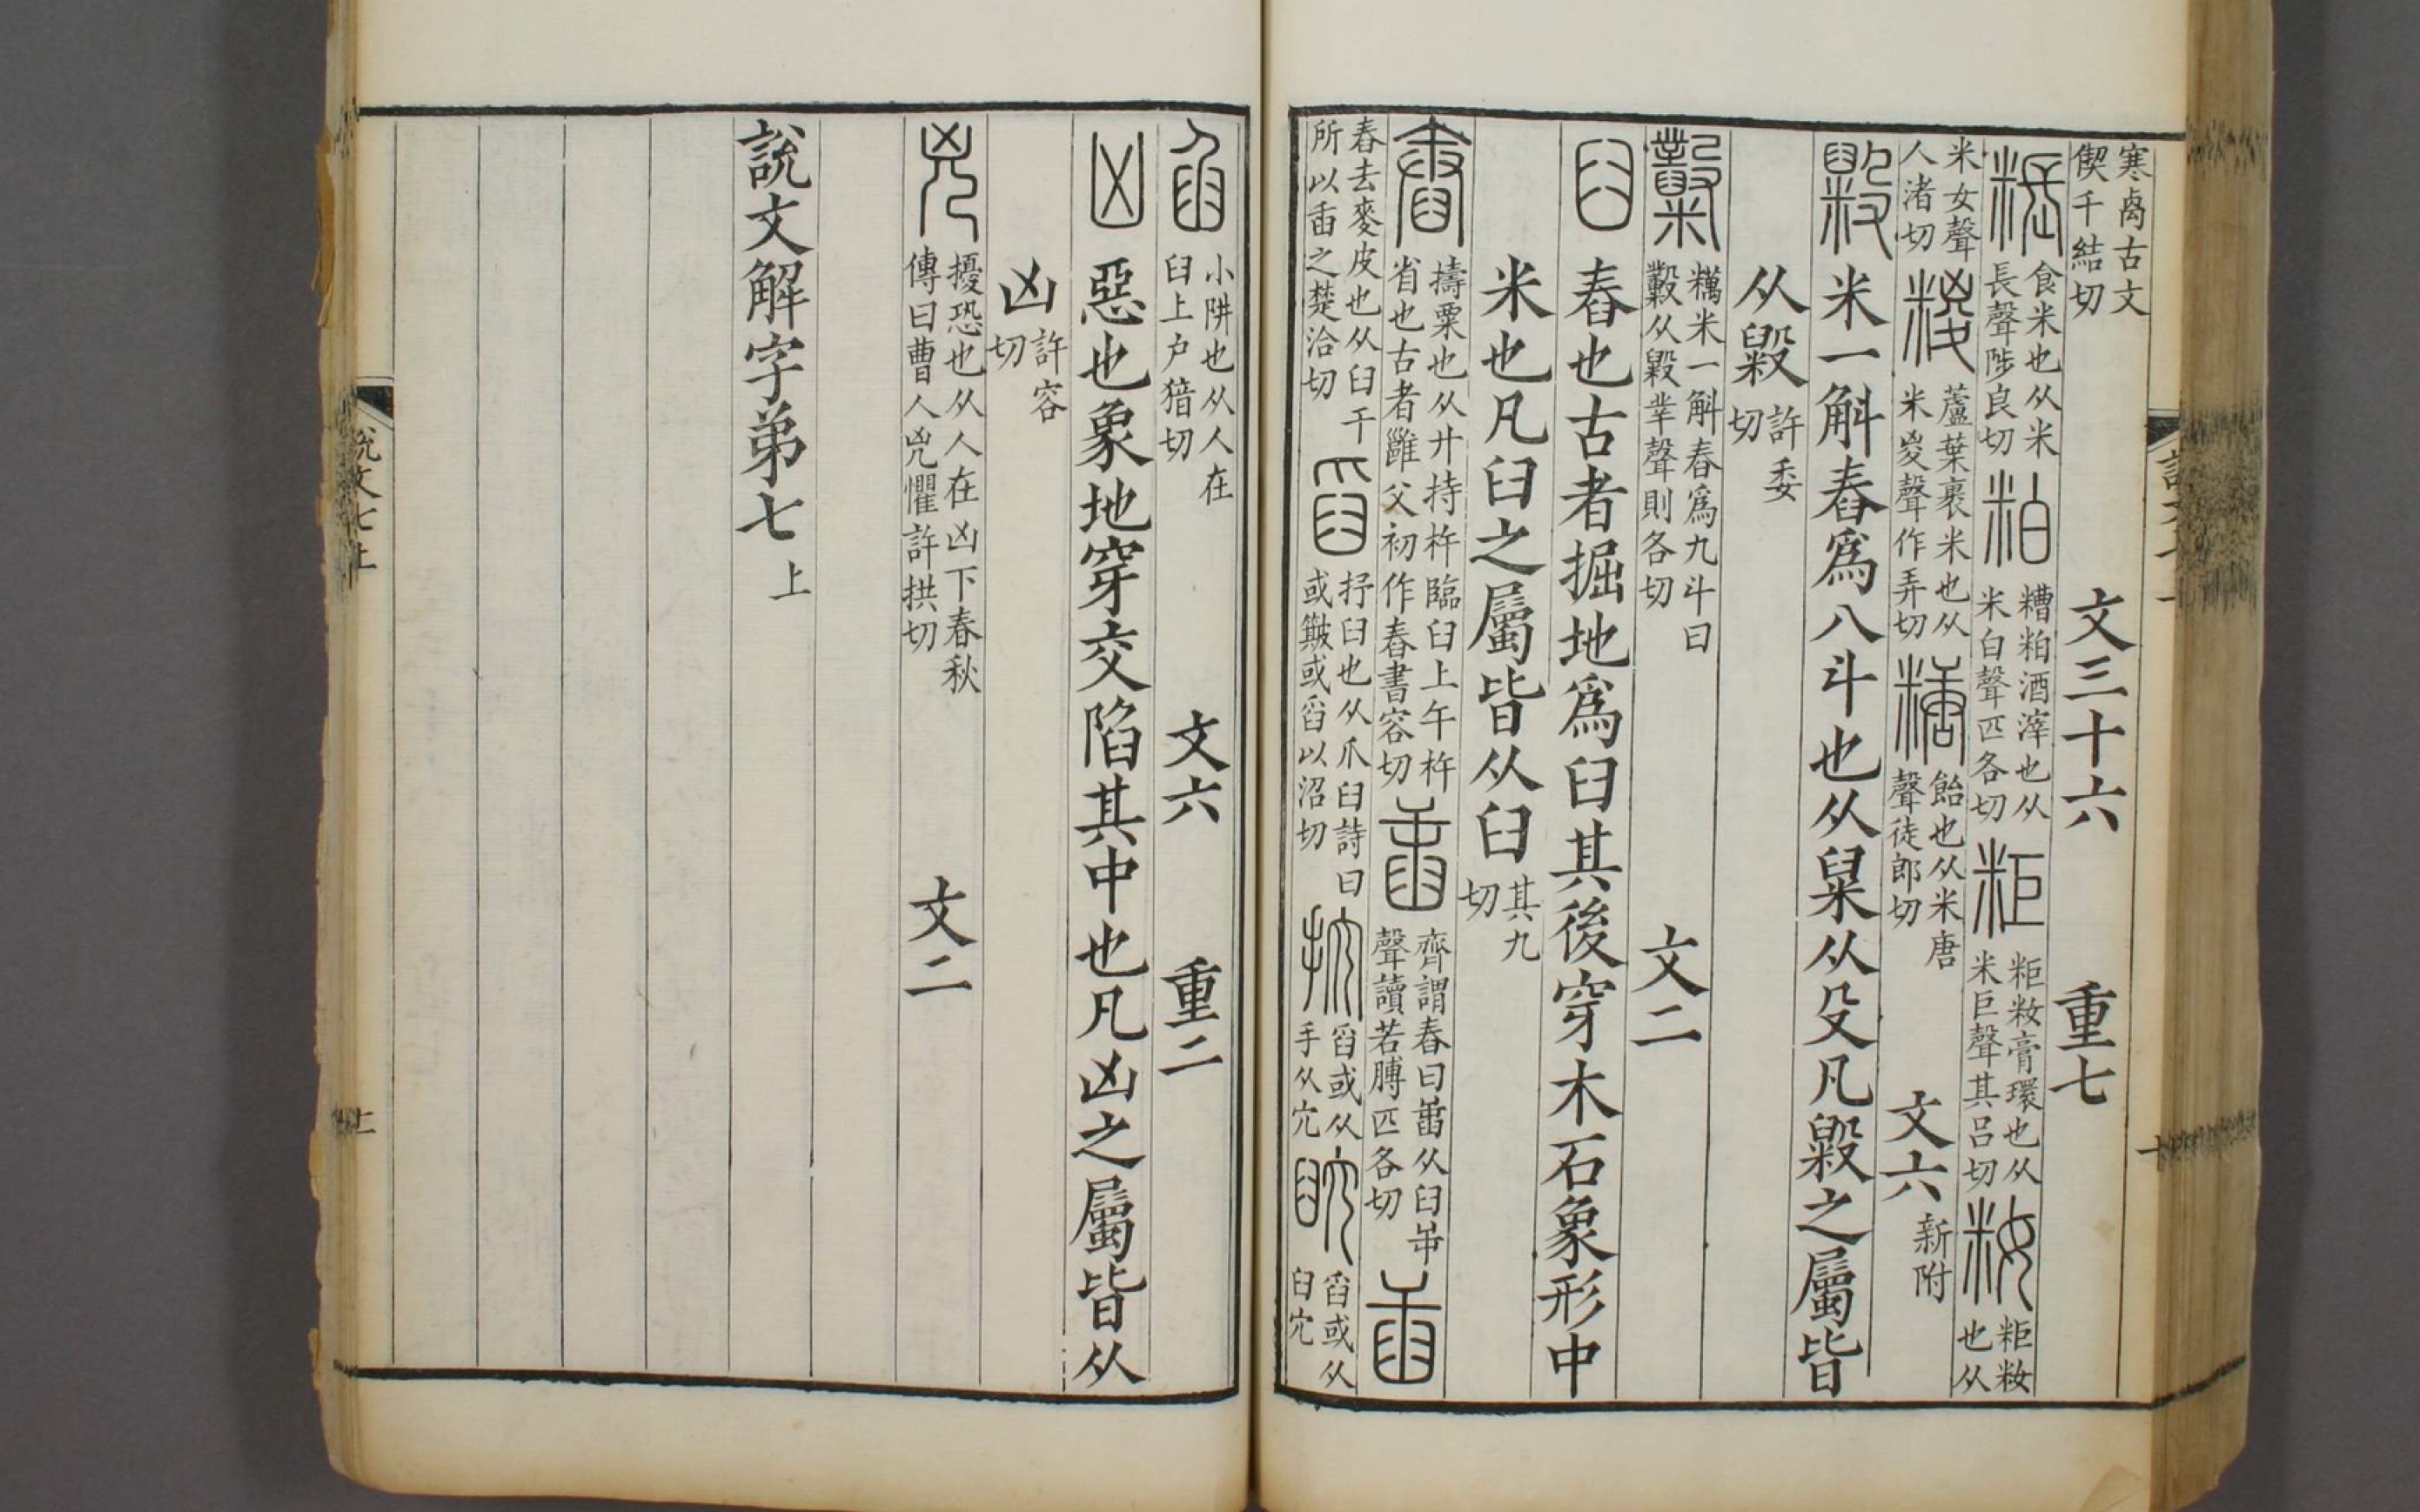 寒禼古文
偰千結切
文三十六
重七
粻
食米也从米
長聲陟良切
粕
糟粕酒滓也从
米白聲匹各切
粔
粔籹膏環也从
米巨聲其呂切
籹
粔籹
也从
米女聲
人渚切
糉
蘆葉裹米也从
米㚇聲作弄切
糖
飴也从米唐
聲徒郎切
文六
新附
毇
米一斛舂爲八斗也从𣫞从殳凡毇之屬皆
从毇
許委
切
糳
糲米一斛舂爲九斗曰
糳从毇丵聲則各切
文二
臼
舂也古者掘地爲臼其後穿木石象形中
米也凡臼之屬皆从臼
其九
切
舂
擣粟也从廾持杵臨臼上午杵
省也古者雝父初作舂書容切
𦥛
齊謂舂曰𦥛从臼屰
聲讀若膊匹各切
臿
舂去麥皮也从臼干
所以臿之楚洽切
舀
抒臼也从爪臼詩曰
或簸或舀以沼切
抭
舀或从
手从宂
𦥽
舀或从
臼宂
臽
小阱也从人在
臼上户猪切
文六
重二
凶
惡也象地穿交陷其中也凡凶之屬皆从
凶
許容
切
兇
擾恐也从人在凶下春秋
傳曰曹人兇懼許拱切
文二
說文解字弟七
上
說文七上